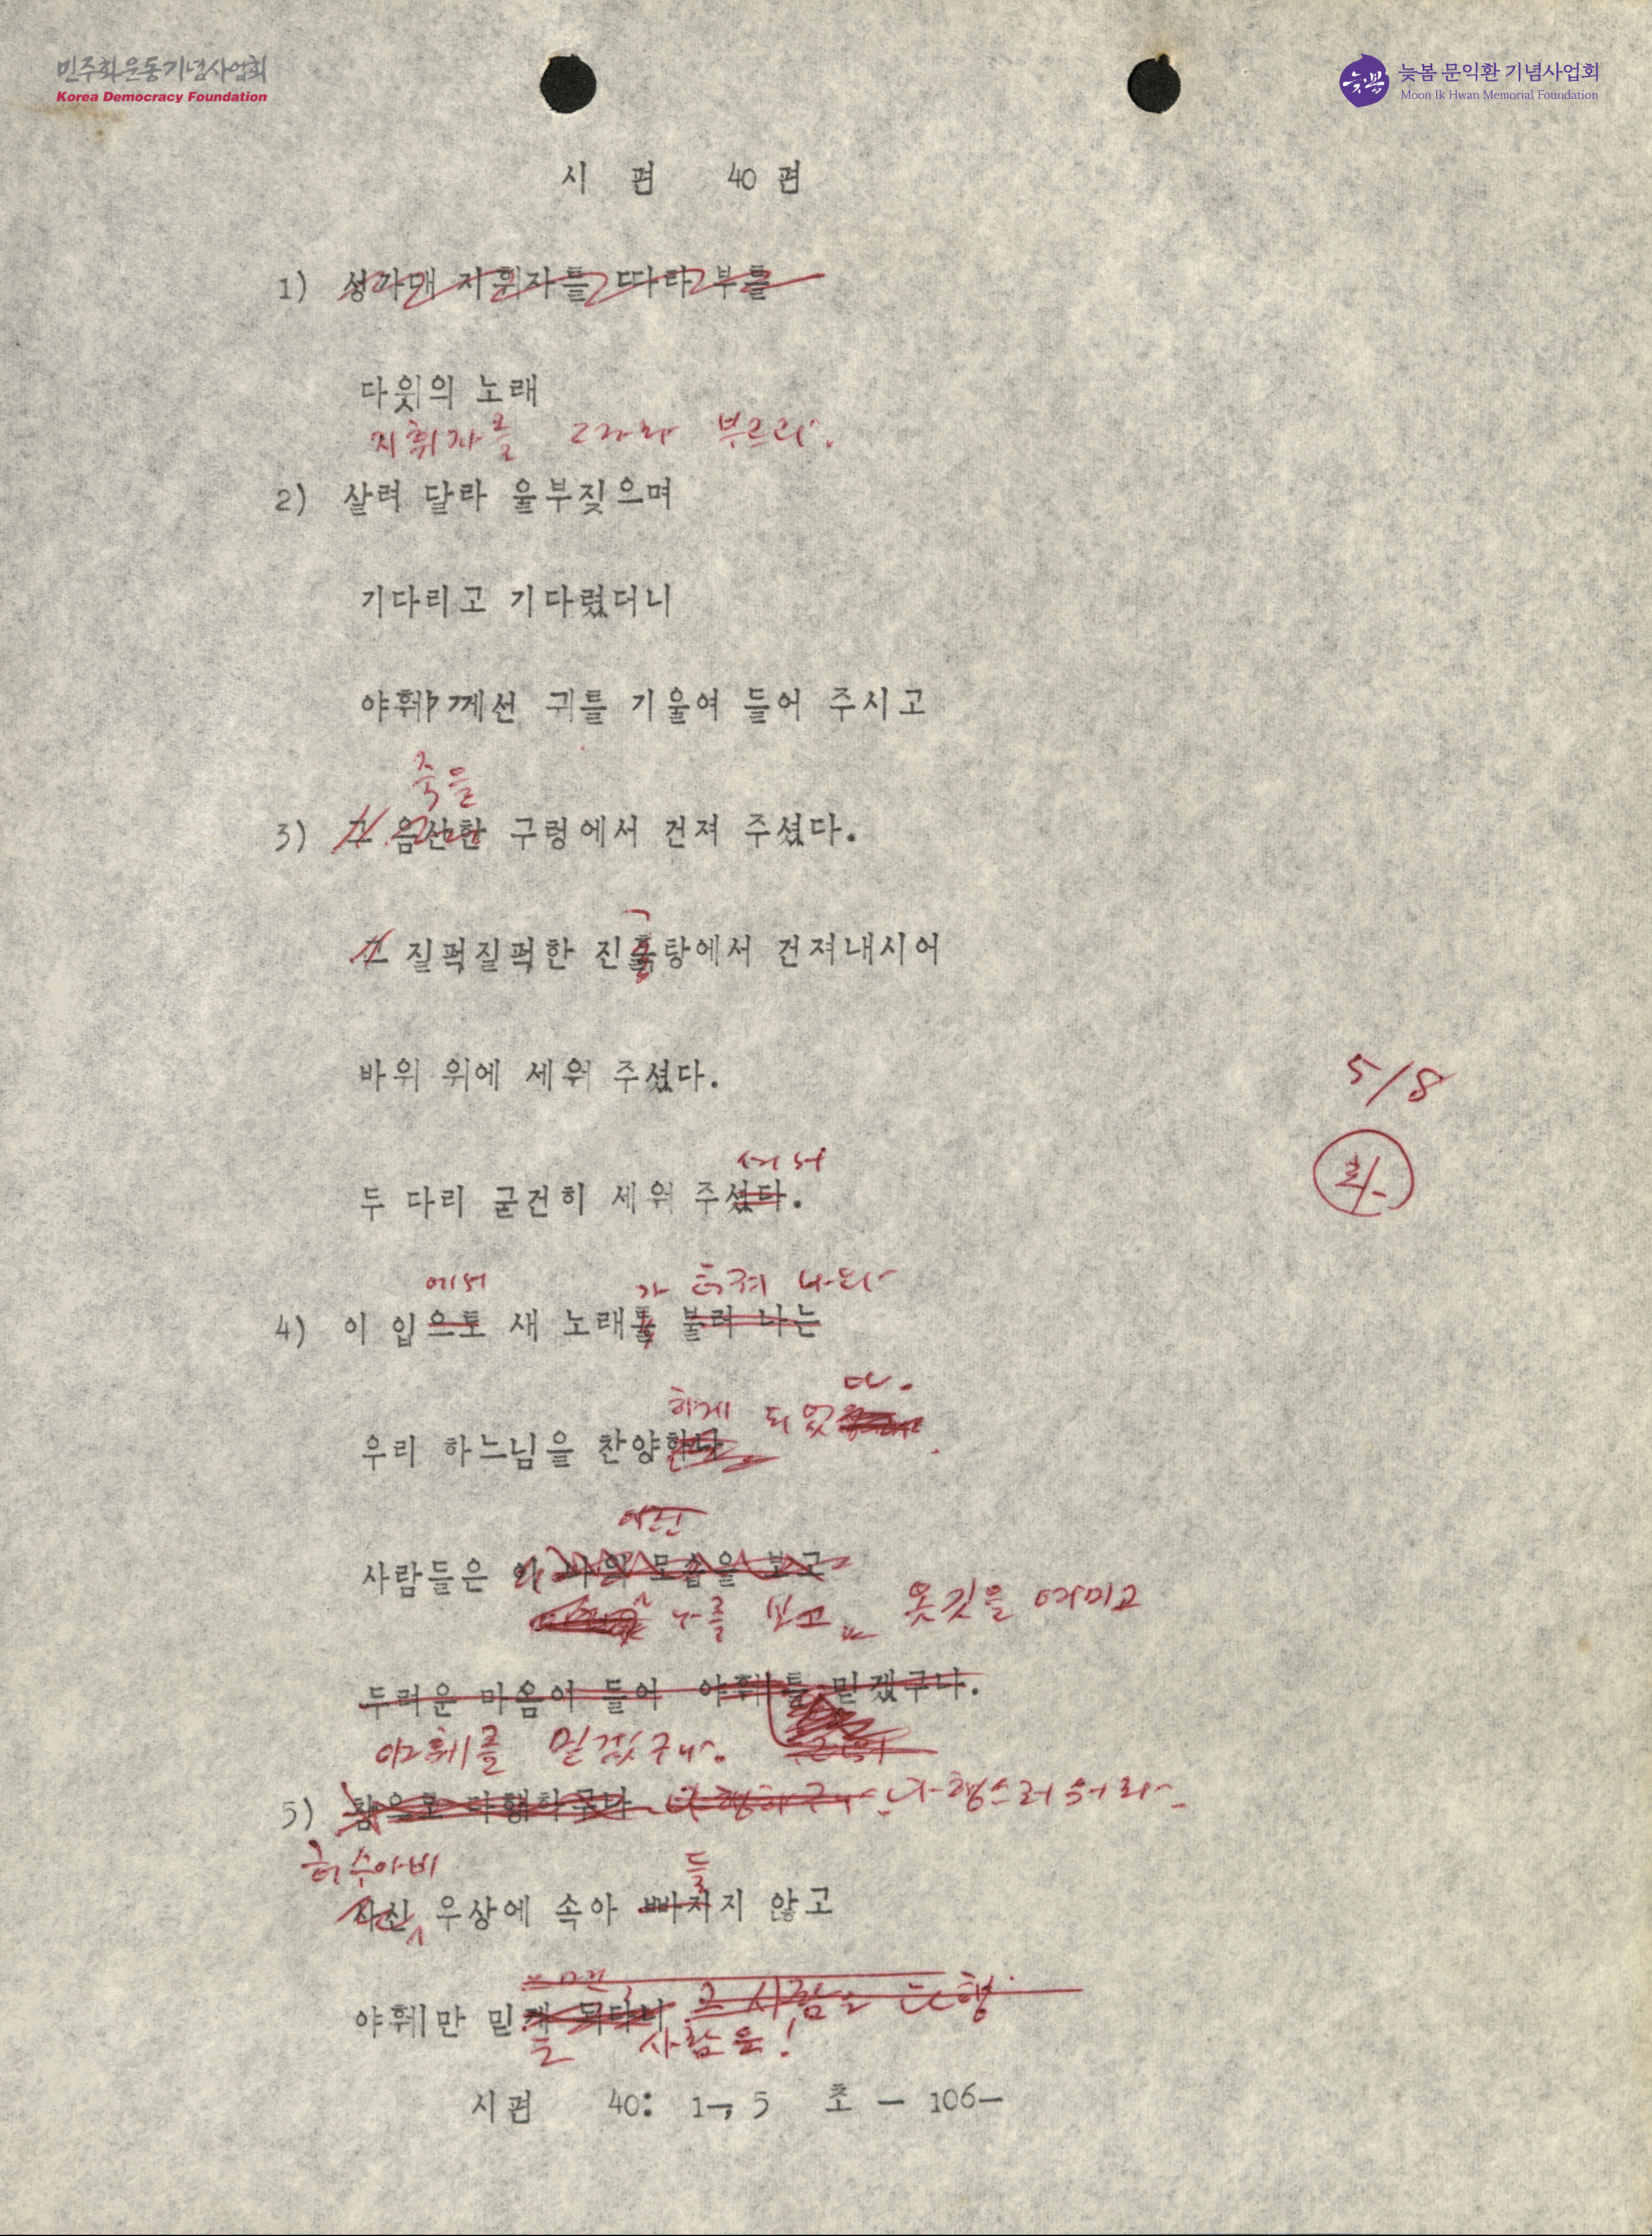 민주화운동기념사업회
Korea Democracy Foundation
늦봄
늦봄 문익환 기념사업회
Moon Ik Hwan Memorial Foundation
시 편 40 편
1) 성가대 지휘자를 따라 부를
다윗의 노래
지휘자를 따라 부르라.
2) 살려 달라 울부짖으며
기다리고 기다렸더니
야훼께선 귀를 기울여 들어 주시고
죽을
3) 그 음산한 구렁에서 건져 주셨다.
그 질퍽질퍽한 진흙탕에서 건져내시어
바위 위에 세워 주셨다.
5/8
셔서
두 다리 굳건히 세워 주셨다.
에서 가 터져 나와
4) 이 입으로 새 노래를 불러 나는
다.
하게 되었
우리 하느님을 찬양한다
이런
사람들은 이 나의 모습을 보고
나를 보고 옷깃을 여미고
두려운 마음이 들어 야훼를 믿겠구나.
야훼를 믿겠구나.
5) 참으로 다행하구나 다행하구나 다행스러워라
허수아비 들
사신 우상에 속아 빠지지 않고
그 사람은
야훼만 믿게 되다니
는 사람은!
시편 40: 1-, 5 초 - 106-